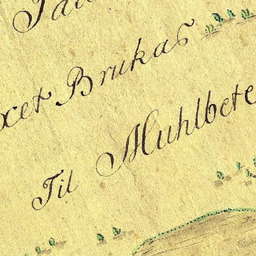 xet Brukas
Til Muhlbete